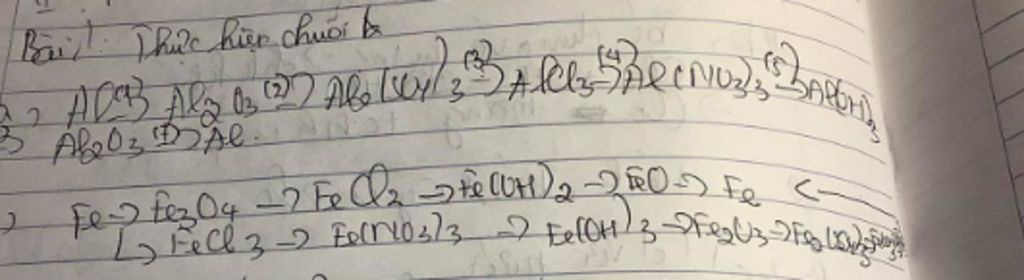 Bài 1: Thực hiện chuỗi
Al (1)→ Al2O3 (2)→ Al2(SO4)3 (3)→ AlCl3 (4)→ Al(NO3)3 (5)→ Al(OH)3
Al2O3 (7)→ Al.
Fe → Fe3O4 → FeCl2 → Fe(OH)2 → FeO → Fe ←
↳ FeCl3 → Fe(NO3)3 → Fe(OH)3 → Fe2O3 → Fe2(SO4)3